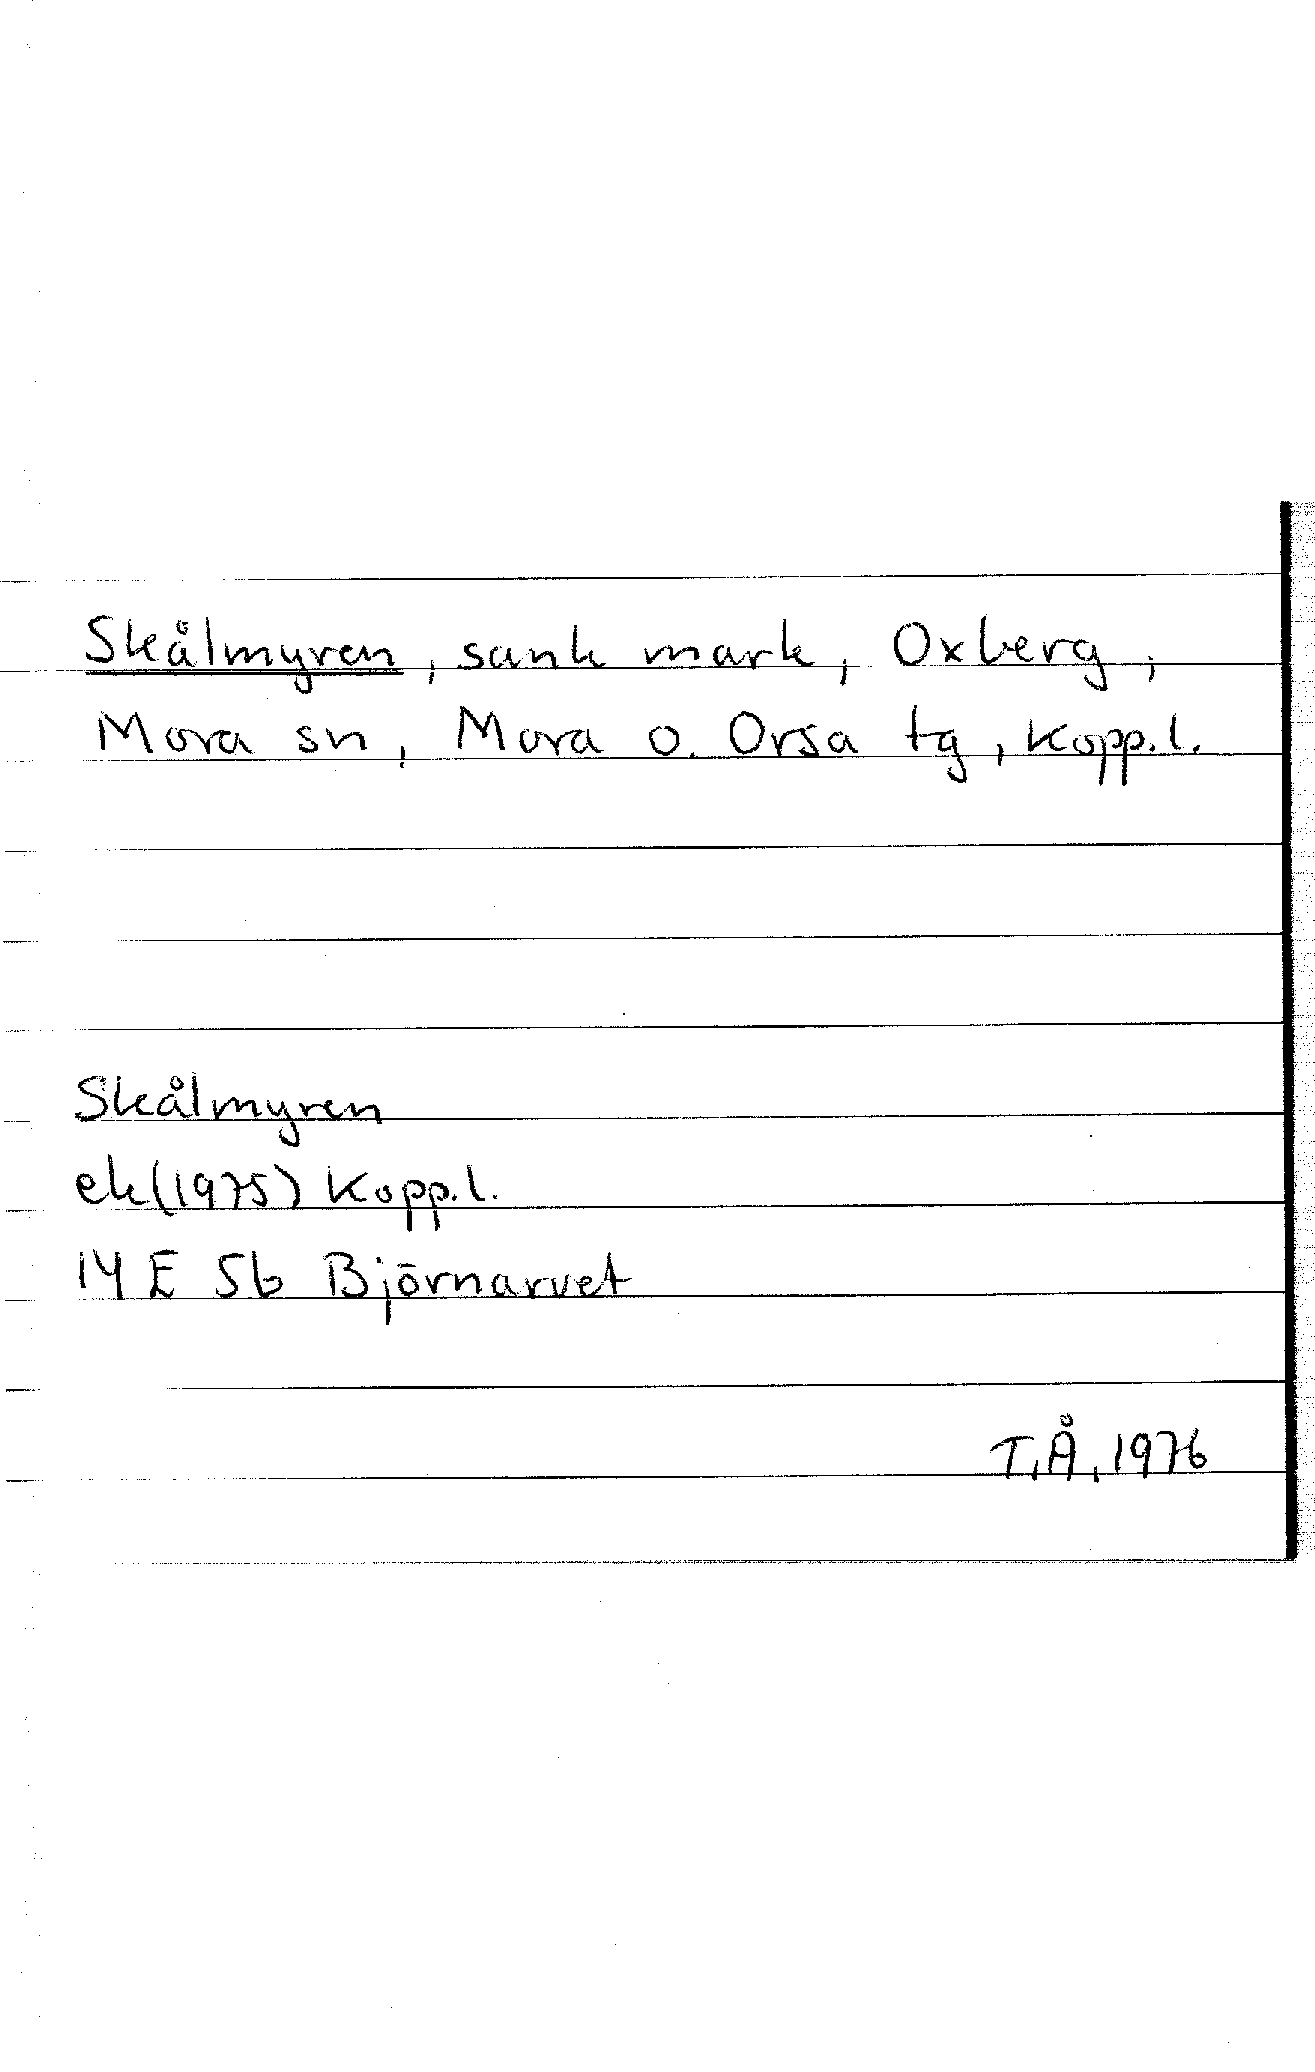 Skålmyren, sank mark, Oxberg,
Mora sn, Mora o. Orsa tg, Kopp.l.
Skålmyren
ek(1975) Kopp.l.
14 E 5b Björnarvet
T.Å.1976